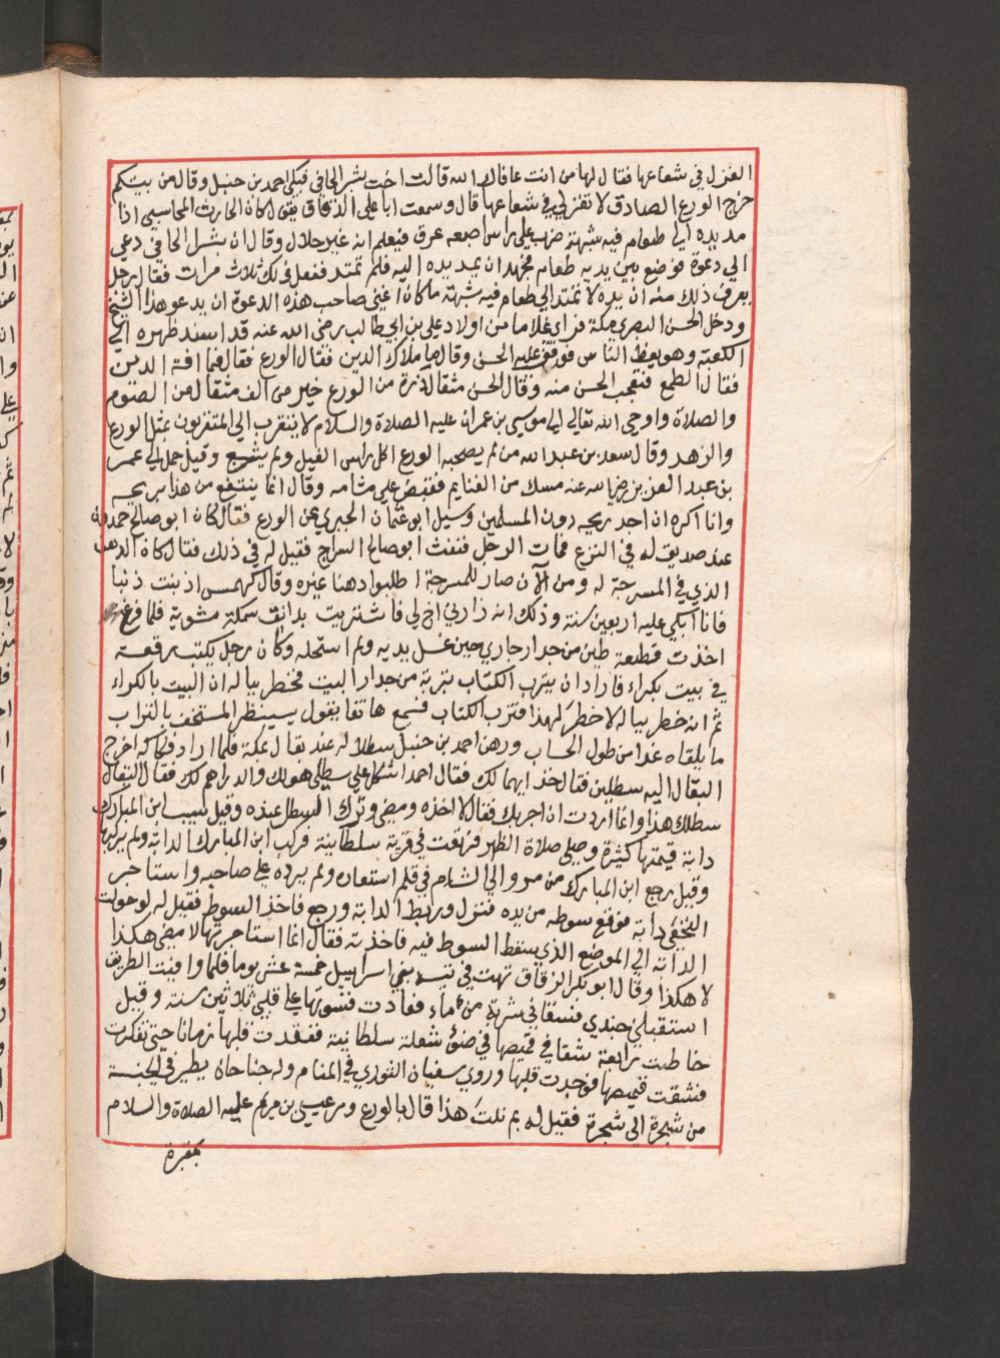 الغزل في شعاعها فقال لها من انت عافاك الله قالت اخت بشر الحافي فبكى احمد بن حنبل وقال من بيتكم
خرج الورع الصادق لا تغزلي في شعاعها قال وسمعت ابا علي الدقاق يقول كان الحارث المحاسبي اذا
مد يده الى طعام فيه شبهة ضرب على راس اصبعه عرق فيعلم انه غير حلال وقال ان بشر الحافي دعي
الى دعوة فوضع بين يديه طعام فجهد ان يمد يده اليه فلم تمتد ففعل ذلك ثلاث مرات فقال رجل
يعرف ذلك منه ان يده لا تمتد الى طعام فيه شبهة ما كان اغنى صاحب هذه الدعوة ان يدعو هذا الشيخ
ودخل الحسن البصري مكة فراى غلاما من اولاد علي بن ابي طالب رضي الله عنه قد اسند ظهره الى
الكعبة وهو يعظ الناس فوقف عليه الحسن وقال ما ملاك الدين فقال الورع فقال فما افة الدين
فقال الطمع فتعجب الحسن منه وقال الحسن مثقال ذرة من الورع خير من الف مثقال من الصوم
والصلاة واوحى الله تعالى الى موسى بن عمران عليه الصلاة والسلام لا يتقرب الي المتقربون بمثل الورع
والزهد وقال سهد بن عبد الله من لم يصحبه الورع اكل راس الفيل ولم يشبع وقيل حمل الى عمر
بن عبد العزيز رضي الله عنه مسك من الغنايم فقبض على مشامه وقال انما ينتفع من هذا بريحه
وانا اكره ان اجد ريحه دون المسلمين وسيل ابو عثمان الحيري عن الورع فقال كان ابو صالح حمدون
عند صديق له في النزع فمات الرجل فنفث ابو صالح السراج فقيل له في ذلك فقال كان الدهن
الذي في المسرجة له ومن الآن صار للمسرجة اطلبوا دهنا غيره وقال كهمس اذنبت ذنبا
فانا ابكي عليه اربعين سنة وذلك انه زارني اخ لي فاشتريت بدانق سمكة مشوية فلما فرغ
اخذت قطعة طين من جدار جار لي حين غسل يديه ولم استحله وكان رجل يكتب رقعة
في بيت بكراء فاراد ان يترب الكتاب بتربة من جدار البيت فخطر بباله ان البيت بالكراء
ثم انه خطر بباله لا خطر لهذا فترب الكتاب فسمع هاتفا يقول سينظر المستخف بالتراب
ما يلقاه غدا من طول الحساب ورهن احمد بن حنبل سطلا له عند بقال بمكة فلما اراد فكاكه اخرج
البقال اليه سطلين فقال خذ ايهما لك فقال احمد اشكل علي سطلي هو لك والدراهم لك فقال البقال
سطلك هذا وانما اردت ان اجربك فقال لا اخذه ومضى وترك السطل عنده وقيل سيب ابن المبارك
دابة قيمتها كثيرة وصلى صلاة الظهر فرتعت في قرية سلطانية فركب ابن المبارك الدابة ولم يركبها
وقيل رجع ابن المبارك من مرو الى الشام في قلم استعاره ولم يرده على صاحبه واستاجر
النخعي دابة فوقع سوطه من يده فنزل وربط الدابة ورجع فاخذ السوط فقيل له لو حولت
الدابة الى الموضع الذي سقط السوط فيه فاخذته فقال انما استاجرتها لامضي هكذا
لا هكذا وقال ابو بكر الزقاق تهت في تيه بني اسرائيل خمسة عشر يوما فلما وافيت الطريق
استقبلني جندي فسقاني شربة من ماء فعادت قسوتها على قلبي ثلاثين سنة وقيل
خاطت رابعة شقا في قميصها في ضوء شعلة سلطانية ففقدت قلبها زمانا حتى تفكرت
فشقت قميصها فوجدت قلبها وروي سفيان الثوري في المنام وله جناحان يطير في الجنة
من شجرة الى شجرة فقيل له بم نلت هذا قال بالورع ومر عيسى بن مريم عليه الصلاة والسلام
بمقبرة